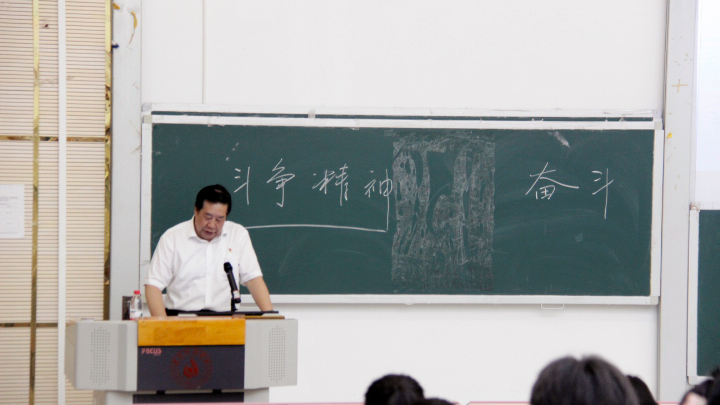 斗争精神 奋斗
FOCUS